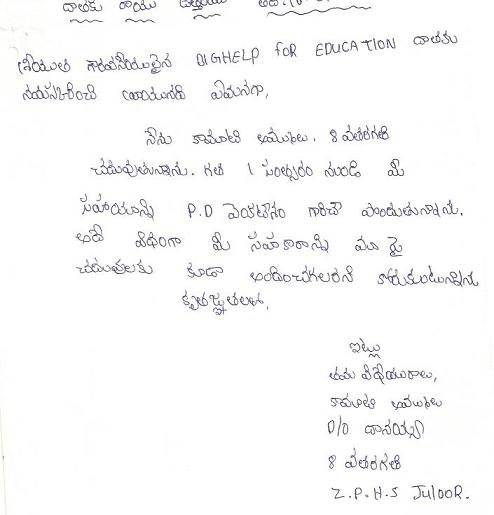 దాతకు రాయు ఉత్తరము
శ్రీయుత గౌరవనీయులైన BIGHELP for EDUCATION దాతకు
నమస్కరించి వ్రాయునది ఏమనగా,
నేను కామాటి అమ్ములు. 8 వతరగతి
చదువుతున్నాను. గత 1 సంత్సరం నుండి మీ
సహాయాన్ని P.D వెంకటేశం గారిచే పొందుతున్నాను.
అదే విధంగా మీ సహకారాన్ని మా పై
చదువులకు కూడా అందించగలరని కోరుకుంటున్నాను
కృతజ్ఞతలతో,
ఇట్లు
తమ విధేయురాలు,
కామాటి అమ్ములు
D/o దానయ్య
8 వతరగతి
Z.P.H.S JulooR.